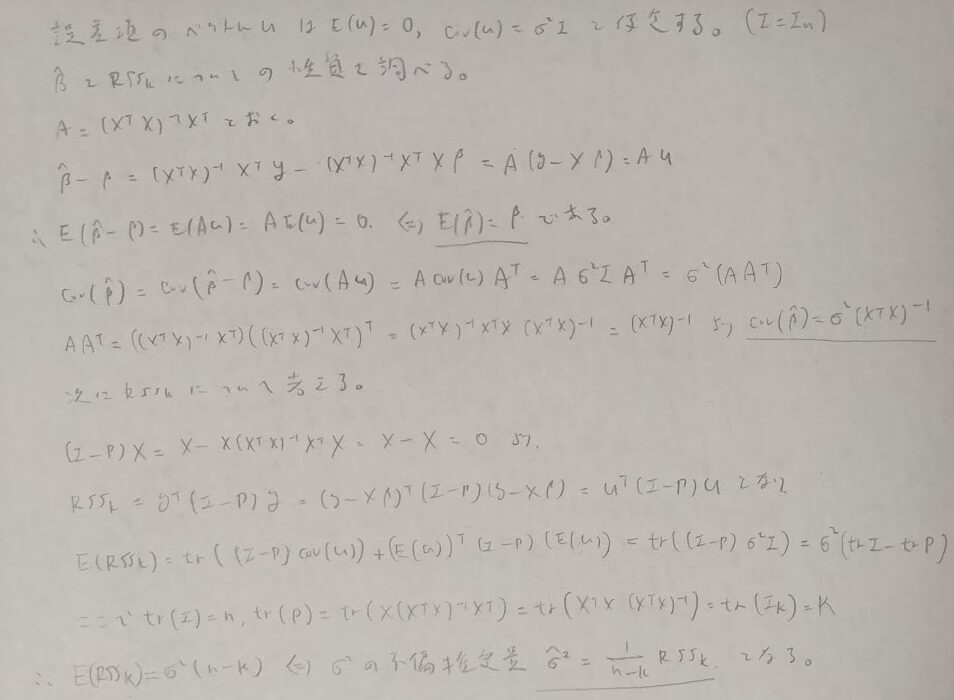 誤差項のベクトルu は E(u)=0, cov(u)=σ²I と仮定する。(I=In)
β̂ と RSSk についての性質を調べる。
A = (XᵀX)⁻¹Xᵀ とおく。
β̂ - β = (XᵀX)⁻¹Xᵀy - (XᵀX)⁻¹XᵀXβ = A(y-Xβ) = Au
∴ E(β̂-β) = E(Au) = AE(u) = 0. ⇔ E(β̂) = β である。
cov(β̂) = cov(β̂-β) = cov(Au) = A cov(u) Aᵀ = A σ²I Aᵀ = σ²(AAᵀ)
AAᵀ = ((XᵀX)⁻¹Xᵀ)((XᵀX)⁻¹Xᵀ)ᵀ = (XᵀX)⁻¹XᵀX (XᵀX)⁻¹ = (XᵀX)⁻¹ より, cov(β̂) = σ²(XᵀX)⁻¹
次に RSSk について考える。
(I-P)X = X - X(XᵀX)⁻¹XᵀX = X - X = 0 より.
RSSk = yᵀ(I-P)y = (y-Xβ)ᵀ(I-P)(y-Xβ) = uᵀ(I-P)u となり
E(RSSk) = tr((I-P)cov(u)) + (E(u))ᵀ(I-P)(E(u)) = tr((I-P)σ²I) = σ²(trI - trP)
ここで tr(I)=n, tr(P) = tr(X(XᵀX)⁻¹Xᵀ) = tr(XᵀX(XᵀX)⁻¹) = tr(Ik) = K
∴ E(RSSk) = σ²(n-k) ⇔ σ² の不偏推定量 σ̂² = 1/(n-k) RSSk. となる。